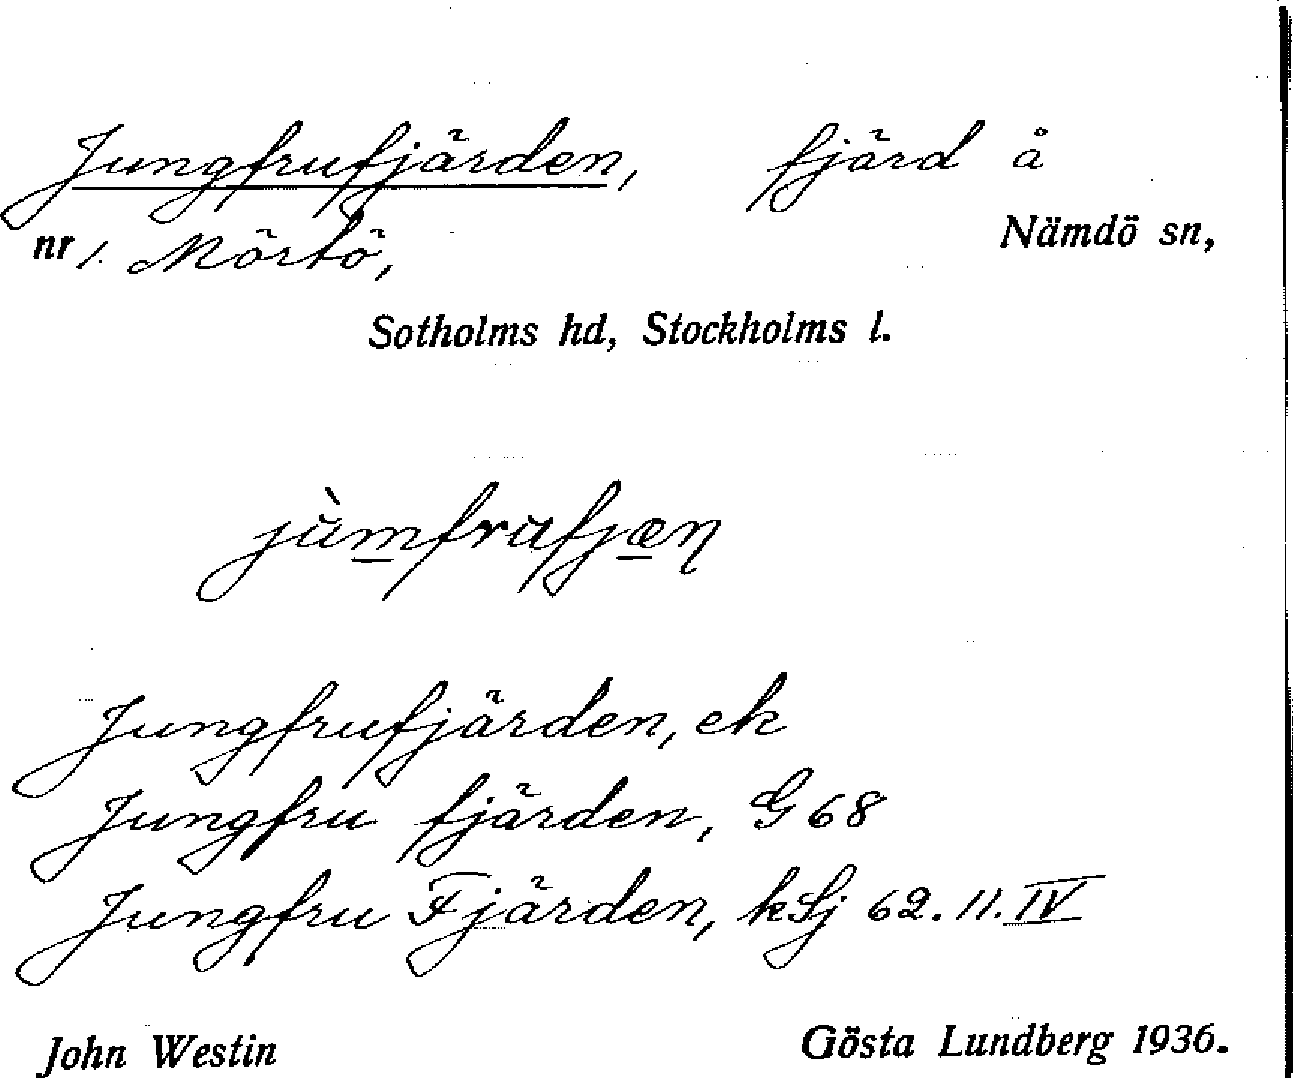 Jungfrufjärden, fjärd å
nr 1. Mörtö, Nämdö sn,
Sotholms hd, Stockholms l.
jùm̲frufjæ̲ɳ
Jungfrufjärden, ek
Jungfru fjärden, G 68
Jungfru Fjärden, kSj 62. 11. IV
John Westin Gösta Lundberg 1936.